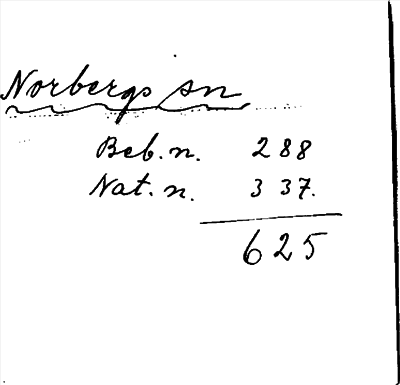 Norbergs sn
Beb.n. 288
Nat.n. 337.
625